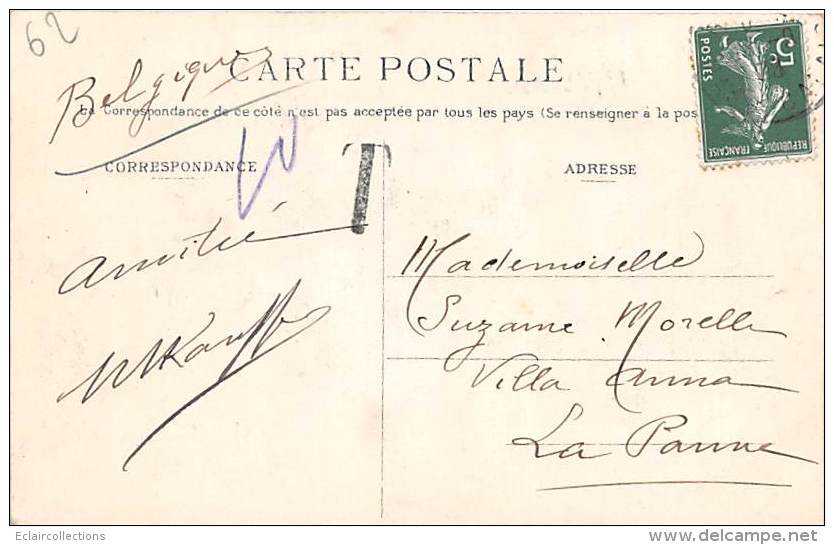 62
Belgique
CARTE POSTALE
La Correspondance de ce côté n'est pas acceptée par tous les pays (Se renseigner à la pos
5c
POSTES
REPUBLIQUE FRANÇAISE
CORRESPONDANCE
T
ADRESSE
Amitié
Mademoiselle
Suzanne Morelle
Villa Anna
La Panne
Eclaircollections
www.delcampe.net